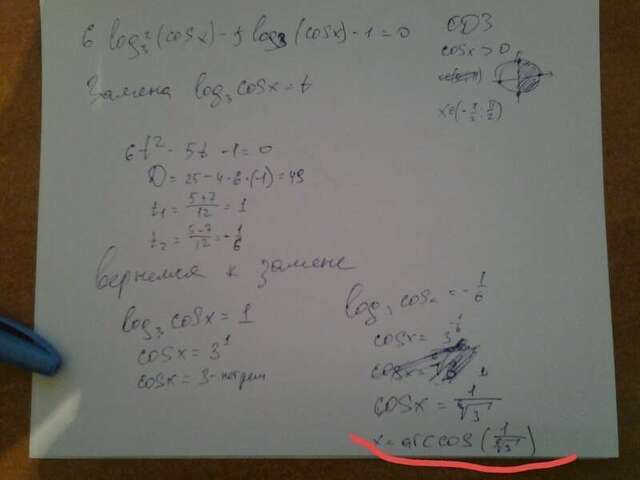 6 log₃²(cosx) - 5 log₃ (cosx) - 1 = 0
ОДЗ
cosx > 0
x ∈ (-π/2; π/2)
Замена log₃ cosx = t
6t² - 5t - 1 = 0
D = 25 - 4·6·(-1) = 49
t₁ = (5+7)/12 = 1
t₂ = (5-7)/12 = -1/6
Вернемся к замене
log₃ cosx = 1
cosx = 3¹
cosx = 3 - нет реш
log₃ cosx = -1/6
cosx = 3^(-1/6)
cosx = 1/⁶√3
x = arccos(1/⁶√3)